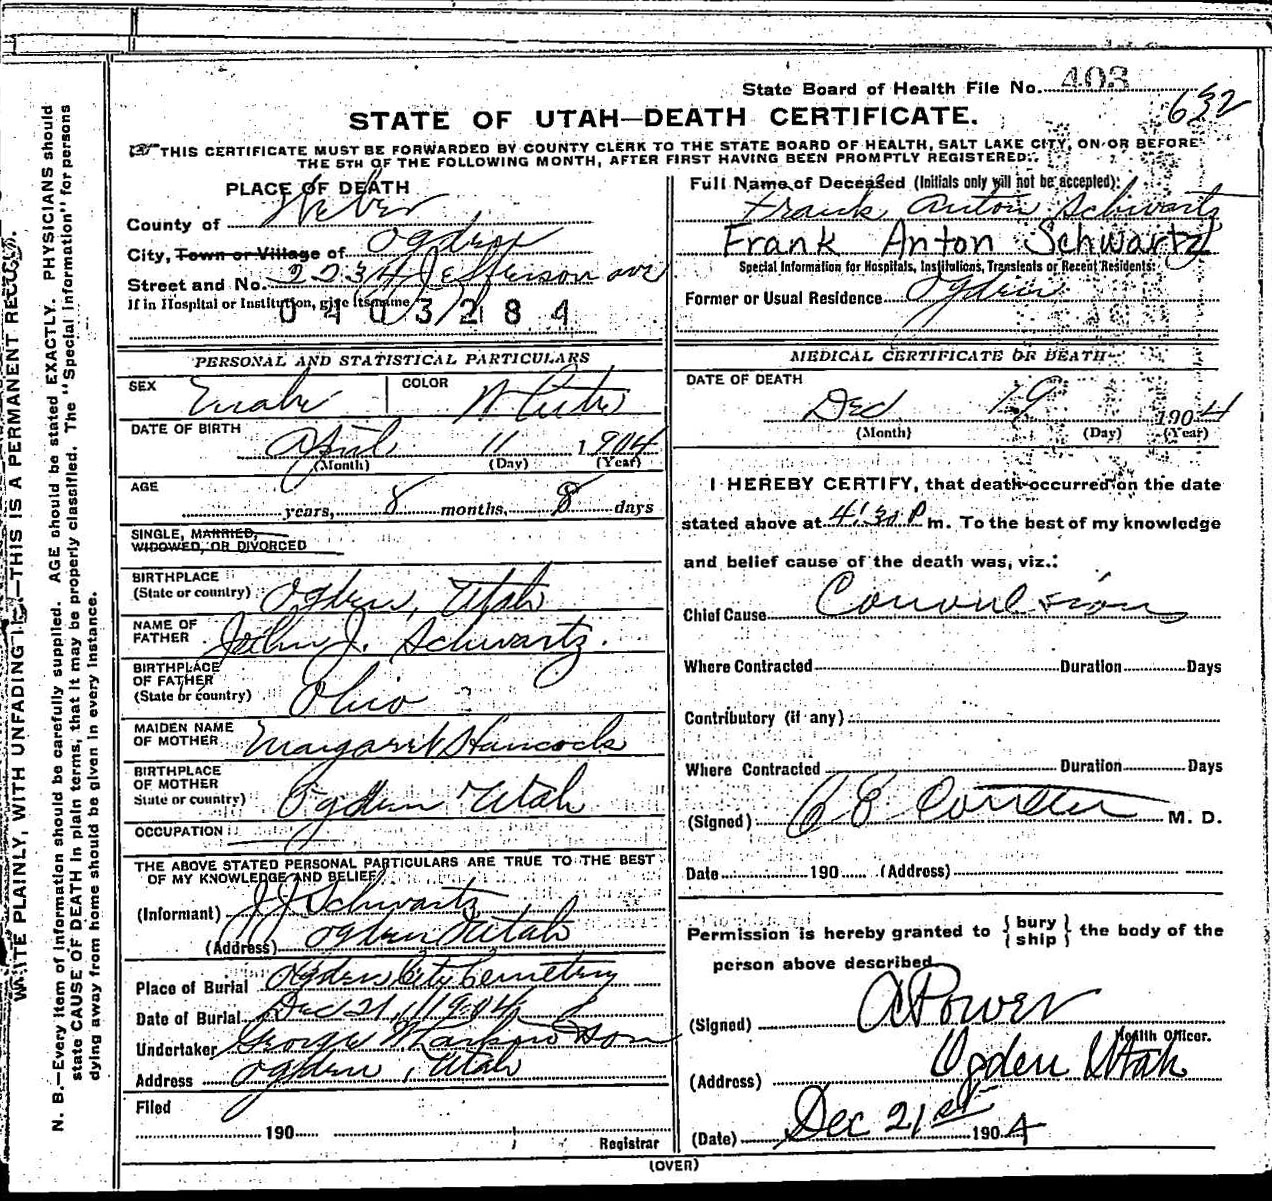 State Board of Health File No. 403
632
STATE OF UTAH—DEATH CERTIFICATE.
THIS CERTIFICATE MUST BE FORWARDED BY COUNTY CLERK TO THE STATE BOARD OF HEALTH, SALT LAKE CITY, ON OR BEFORE
THE 5TH OF THE FOLLOWING MONTH, AFTER FIRST HAVING BEEN PROMPTLY REGISTERED.
PLACE OF DEATH
County of Weber
City, Town or Village of Ogden
Street and No. 2034 Jefferson ave
If in Hospital or Institution, give its name
0403284
Full Name of Deceased (Initials only will not be accepted):
Frank Anton Schwartz
Frank Anton Schwartz
Special Information for Hospitals, Institutions, Transients or Recent Residents:
Former or Usual Residence Ogden
PERSONAL AND STATISTICAL PARTICULARS
SEX Male COLOR White
DATE OF BIRTH
April 11 1904
(Month) (Day) (Year)
AGE
years, 8 months, 8 days
SINGLE, MARRIED,
WIDOWED, OR DIVORCED
BIRTHPLACE
(State or country) Ogden, Utah
NAME OF
FATHER John J. Schwartz.
BIRTHPLACE
OF FATHER
(State or country) Ohio
MAIDEN NAME
OF MOTHER Margaret Hancock
BIRTHPLACE
OF MOTHER
State or country) Ogden Utah
OCCUPATION
THE ABOVE STATED PERSONAL PARTICULARS ARE TRUE TO THE BEST
OF MY KNOWLEDGE AND BELIEF.
(Informant) J J Schwartz
(Address) Ogden Utah
Place of Burial Ogden City Cemetery
Date of Burial Dec 21, 1904
Undertaker George W Larkin & Son
Address Ogden, Utah
Filed
190
Registrar
MEDICAL CERTIFICATE OF DEATH
DATE OF DEATH
Dec 19 1904
(Month) (Day) (Year)
I HEREBY CERTIFY, that death occurred on the date
stated above at 4:30 P m. To the best of my knowledge
and belief cause of the death was, viz.:
Chief Cause Convulsions
Where Contracted Duration Days
Contributory (if any)
Where Contracted Duration Days
(Signed) M. D.
Date 190 (Address)
Permission is hereby granted to {bury
ship} the body of the
person above described.
(Signed) A Power
Health Officer.
(Address) Ogden Utah
(Date) Dec 21st 1904
(OVER)
WRITE PLAINLY, WITH UNFADING INK—THIS IS A PERMANENT RECORD.
N. B.—Every item of information should be carefully supplied. AGE should be stated EXACTLY. PHYSICIANS should
state CAUSE OF DEATH in plain terms, that it may be properly classified. The "Special Information" for persons
dying away from home should be given in every instance.